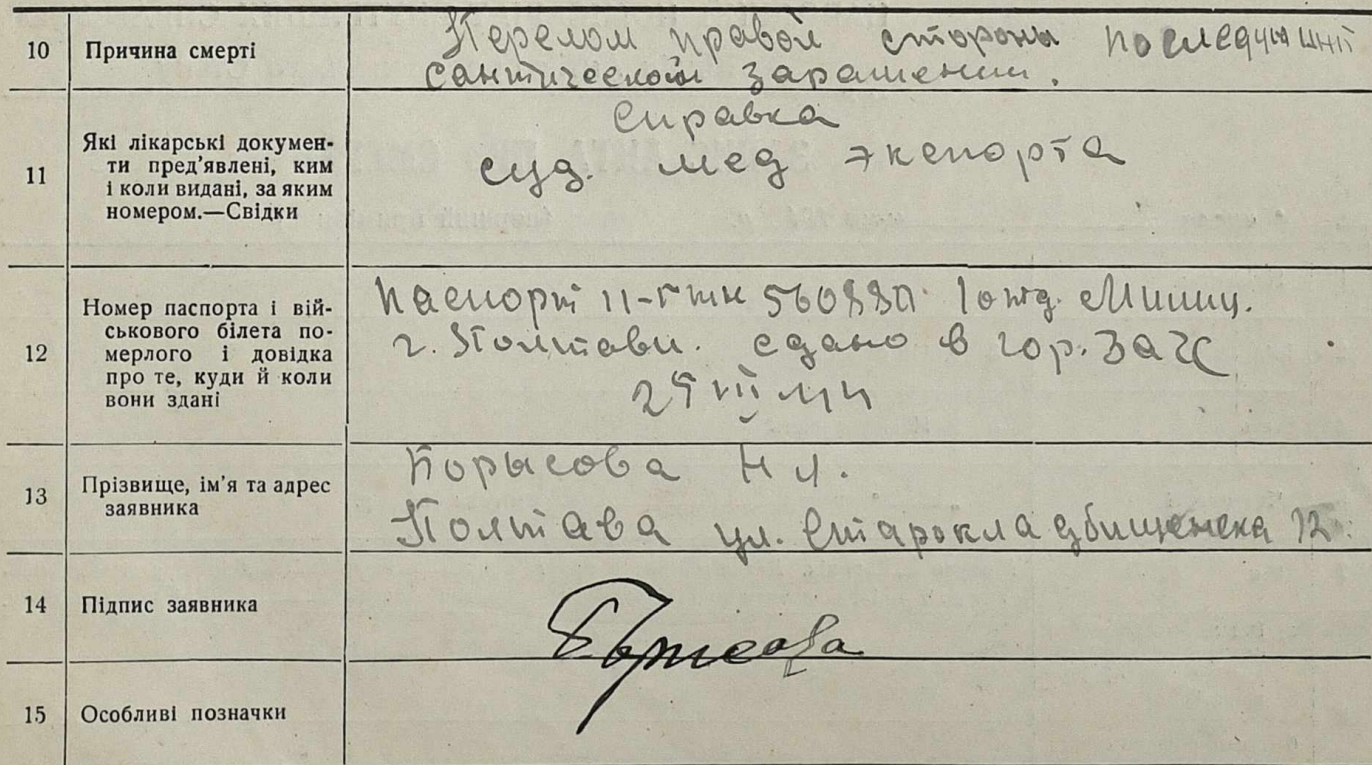 10 Причина смерті Перелом правой стороны последующий
сантической зарашении.
11 Які лікарські докумен-
ти пред'явлені, ким
і коли видані, за яким
номером.—Свідки
Справка
суд. мед экспорта
12 Номер паспорта і вій-
ськового білета по-
мерлого і довідка
про те, куди й коли
вони здані
Паспорт 1 отд. Милиц.
г. Полтави. сдано в гор. Загс
13 Прізвище, ім'я та адрес
заявника
Борысова Н
Полтава ул. Старокладбищенска 12
14 Підпис заявника Борисова
15 Особливі позначки